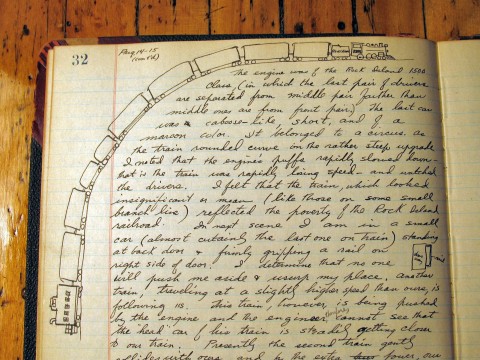 32
Pag 14-15
The engine was of the Rock Island 1500
class (in which the last pair of drivers
are separated from middle pair farther than
middle ones are from front pair). The last car
was a caboose-like, short, and of a
maroon color. It belonged to a circus. as
the train rounded curve on the rather steep upgrade
I noted that the engine's puffs rapidly slowed down-
that is the train was rapidly losing speed - and watched
the drivers. I felt that the train, which looked
insignificant or mean (like those on some small
branch line) reflected the poverty of the Rock Island
railroad. In next scene I am in a small
car (almost certainly the last one on train) standing
at back door & firmly gripping a rail on
right side of door. I determine that no one
will push me aside & usurp my place. Another
train, traveling at a slightly higher speed than ours, is
following us. This train, however, is being pushed
by the engine and the engineer cannot see that
the "head" car of his train is steadily getting closer
to our train. Presently the second train gently
collides with ours and by the extra power, our